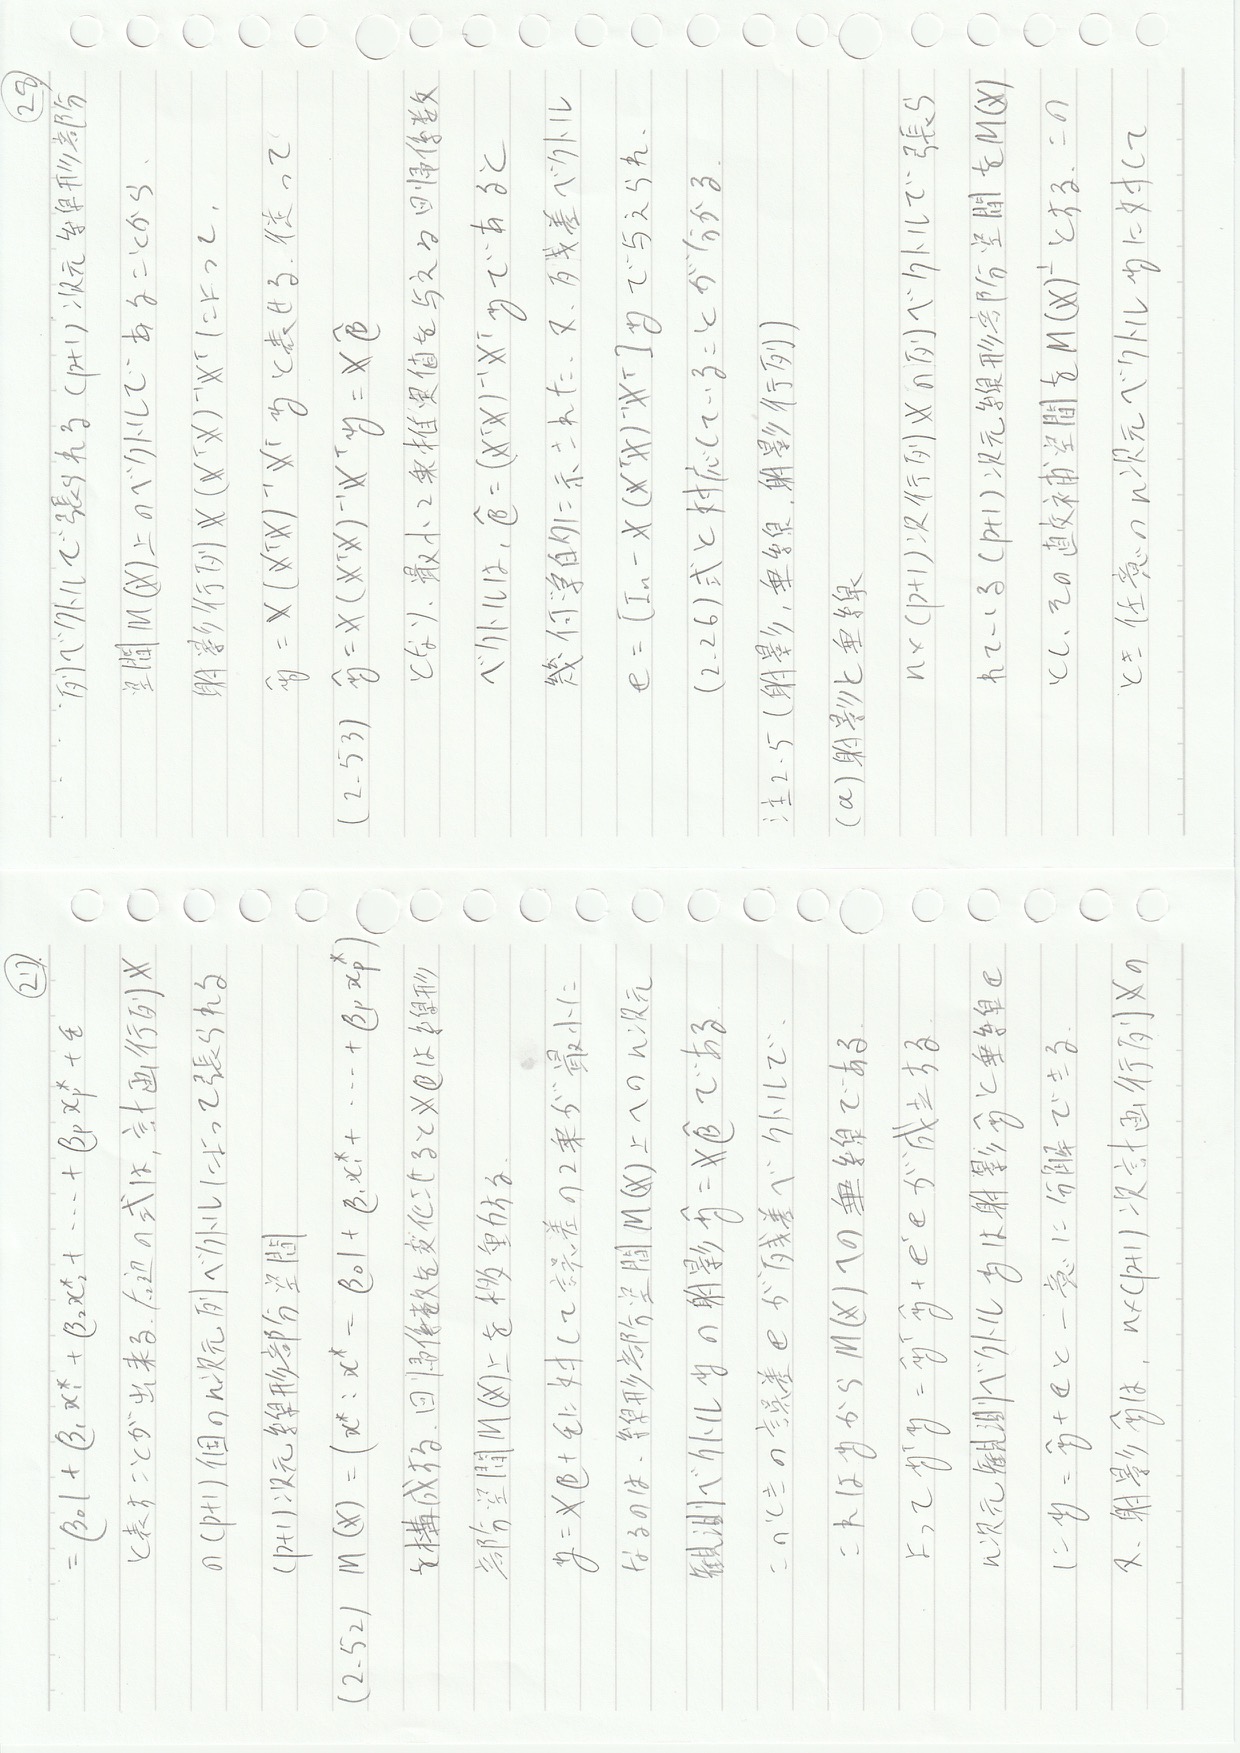 27
= β01 + β1x1* + β2x2* + ... + βpxp* + ε
と表すことが出来る.右辺の式は,計画行列X
の(p+1)個のn次元列ベクトルによって張られる
(p+1)次元線形部分空間
(2.52) M(X) = (x* : x* = β01 + β1x1* + ... + βpxp*)
を構成する.回帰係数を変化させるとXβは線形
部分空間M(X)上を移動する.
y = Xβ + εに対して誤差の2乗が最小に
なるのは、線形部分空間M(X)上へのn次元
観測ベクトルyの射影ŷ = Xβ̂である.
このときの誤差eが残差ベクトルで、
これはyからM(X)への垂線である.
よってyᵀy = ŷᵀŷ + eᵀeが成立する.
n次元観測ベクトルyは射影ŷと垂線e
にy = ŷ + eと一意に分解できる.
又、射影ŷは,n×(p+1)次計画行列Xの
28
列ベクトルで張られる(p+1)次元線形部分
空間M(X)上のベクトルであることから、
射影行列X(XᵀX)⁻¹Xᵀによって,
ŷ = X(XᵀX)⁻¹Xᵀyと表せる.従って
(2.53) ŷ = X(XᵀX)⁻¹Xᵀy = Xβ̂
となり、最小2乗推定値を与える回帰係数
ベクトルは,β̂ = (XᵀX)⁻¹Xᵀyであると
幾何学的に示された.又、残差ベクトル
e = [In - X(XᵀX)⁻¹Xᵀ]yで与えられ、
(2.26)式と対応していることが分かる.
注2.5(射影,垂線,射影行列)
(a)射影と垂線
n×(p+1)次行列Xの列ベクトルで張ら
れている(p+1)次元線形部分空間をM(X)
とし、その直交補空間をM(X)⊥とする.この
とき任意のn次元ベクトルyに対して